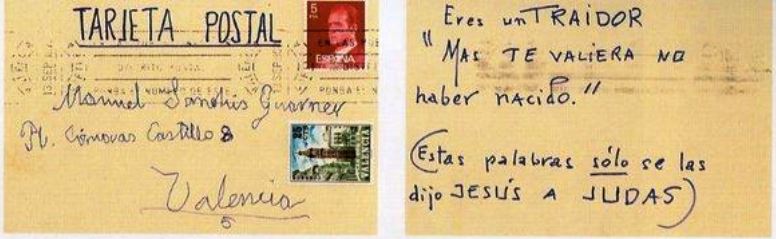 TARJETA POSTAL
5
PTA
ESPAÑA
13 SEP
PONGA EL N
Manuel Sanchis Guarner
Pl. Cánovas Castillo 8
VALENCIA
Valencia
5
Eres un TRAIDOR
"MAS TE VALIERA NO
haber nacido."
(Estas palabras sólo se las
dijo JESÚS A JUDAS)